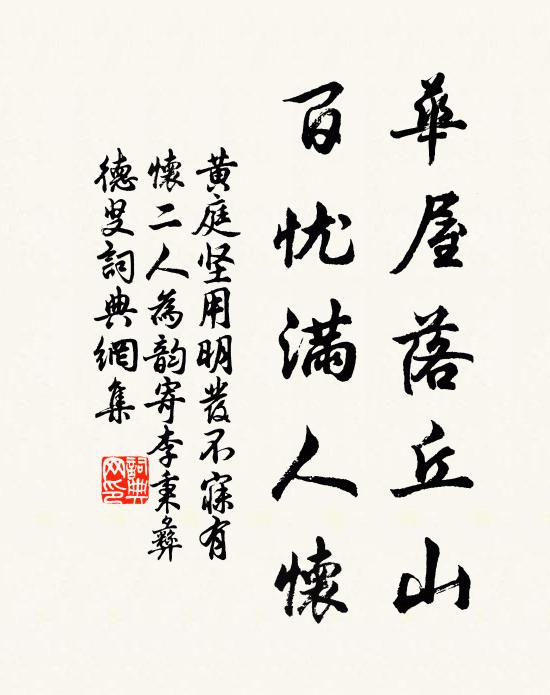 華屋落丘山
百忧滿人懷
黄庭坚用明發不寐有
懷二人為韵寄李秉彝
德叟詞典網集
詞典
网印